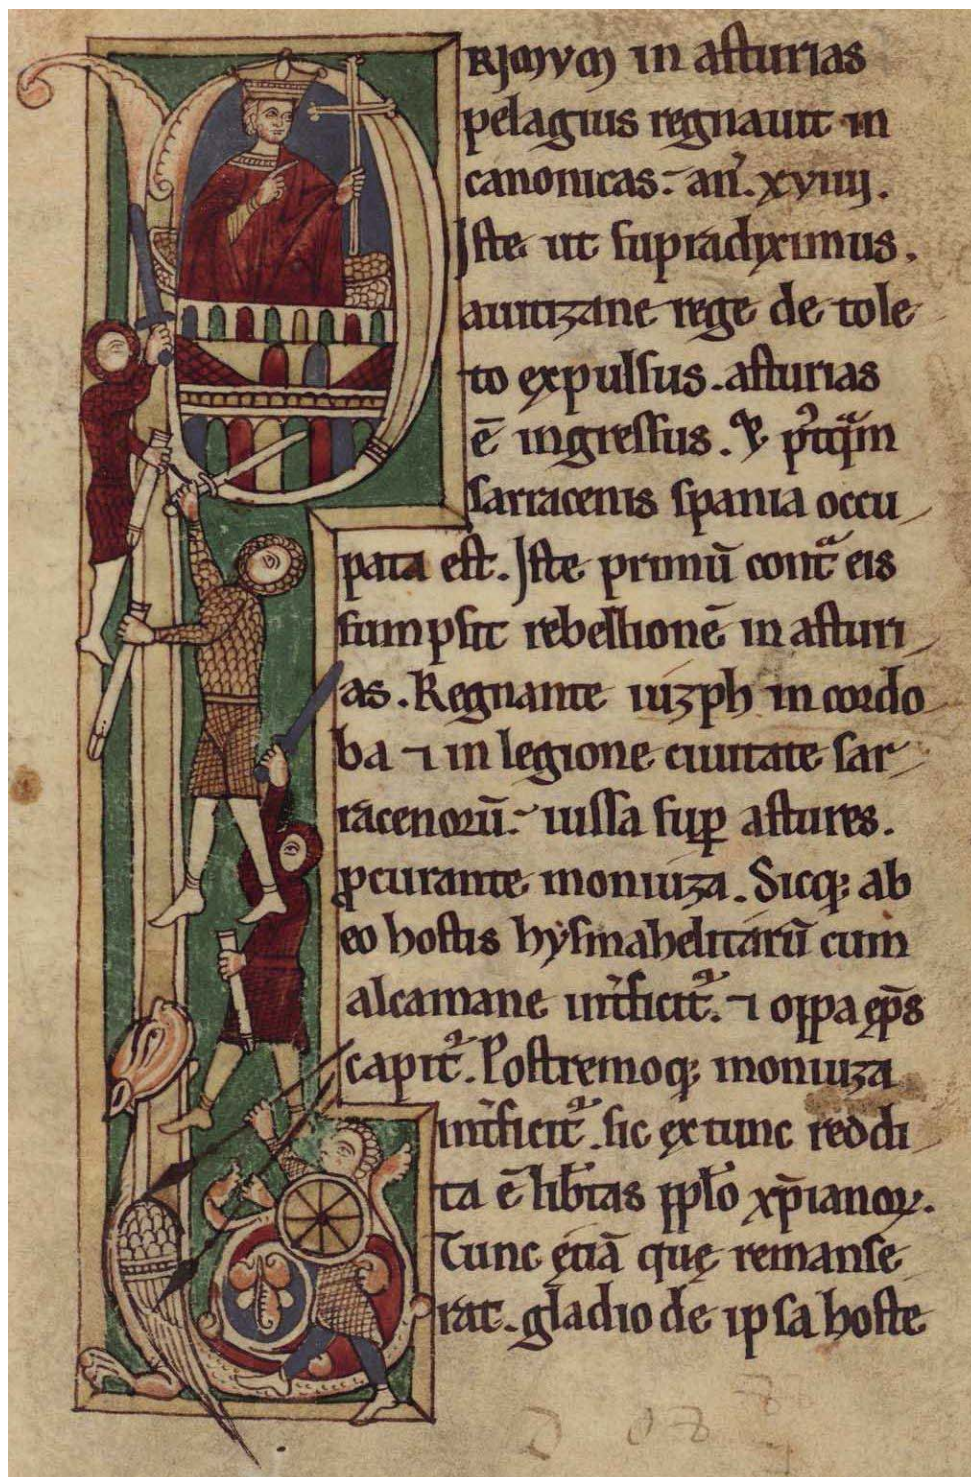 PRIMVM in asturias
pelagius regnauit in
canonicas. an̄. xviiij.
Iste ut supradiximus.
auitizane rege de tole
to expulsus. asturias
ē ingressus. & p̄tqͣm
sarracenis spania occu
pata est. Iste primū contͣ eis
sumpsit rebellionē in asturi
as. Regnante iuzph in cordo
ba ⁊ in legione ciuitate sar
racenorū. iussa suꝑ astures.
ꝓcurante moniuza. Sicqꝫ ab
eo hostis hysmahelitarū cum
alcamane int̄ficit᷑. ⁊ oppa ep̄s
capit᷑. Postremoqꝫ moniuza
int̄ficit᷑. sic ex tunc reddi
ta ē lib̄tas pplo xp̄ianoꝝ.
Tunc etiā quę remanse
rat. gladio de ipsa hoste